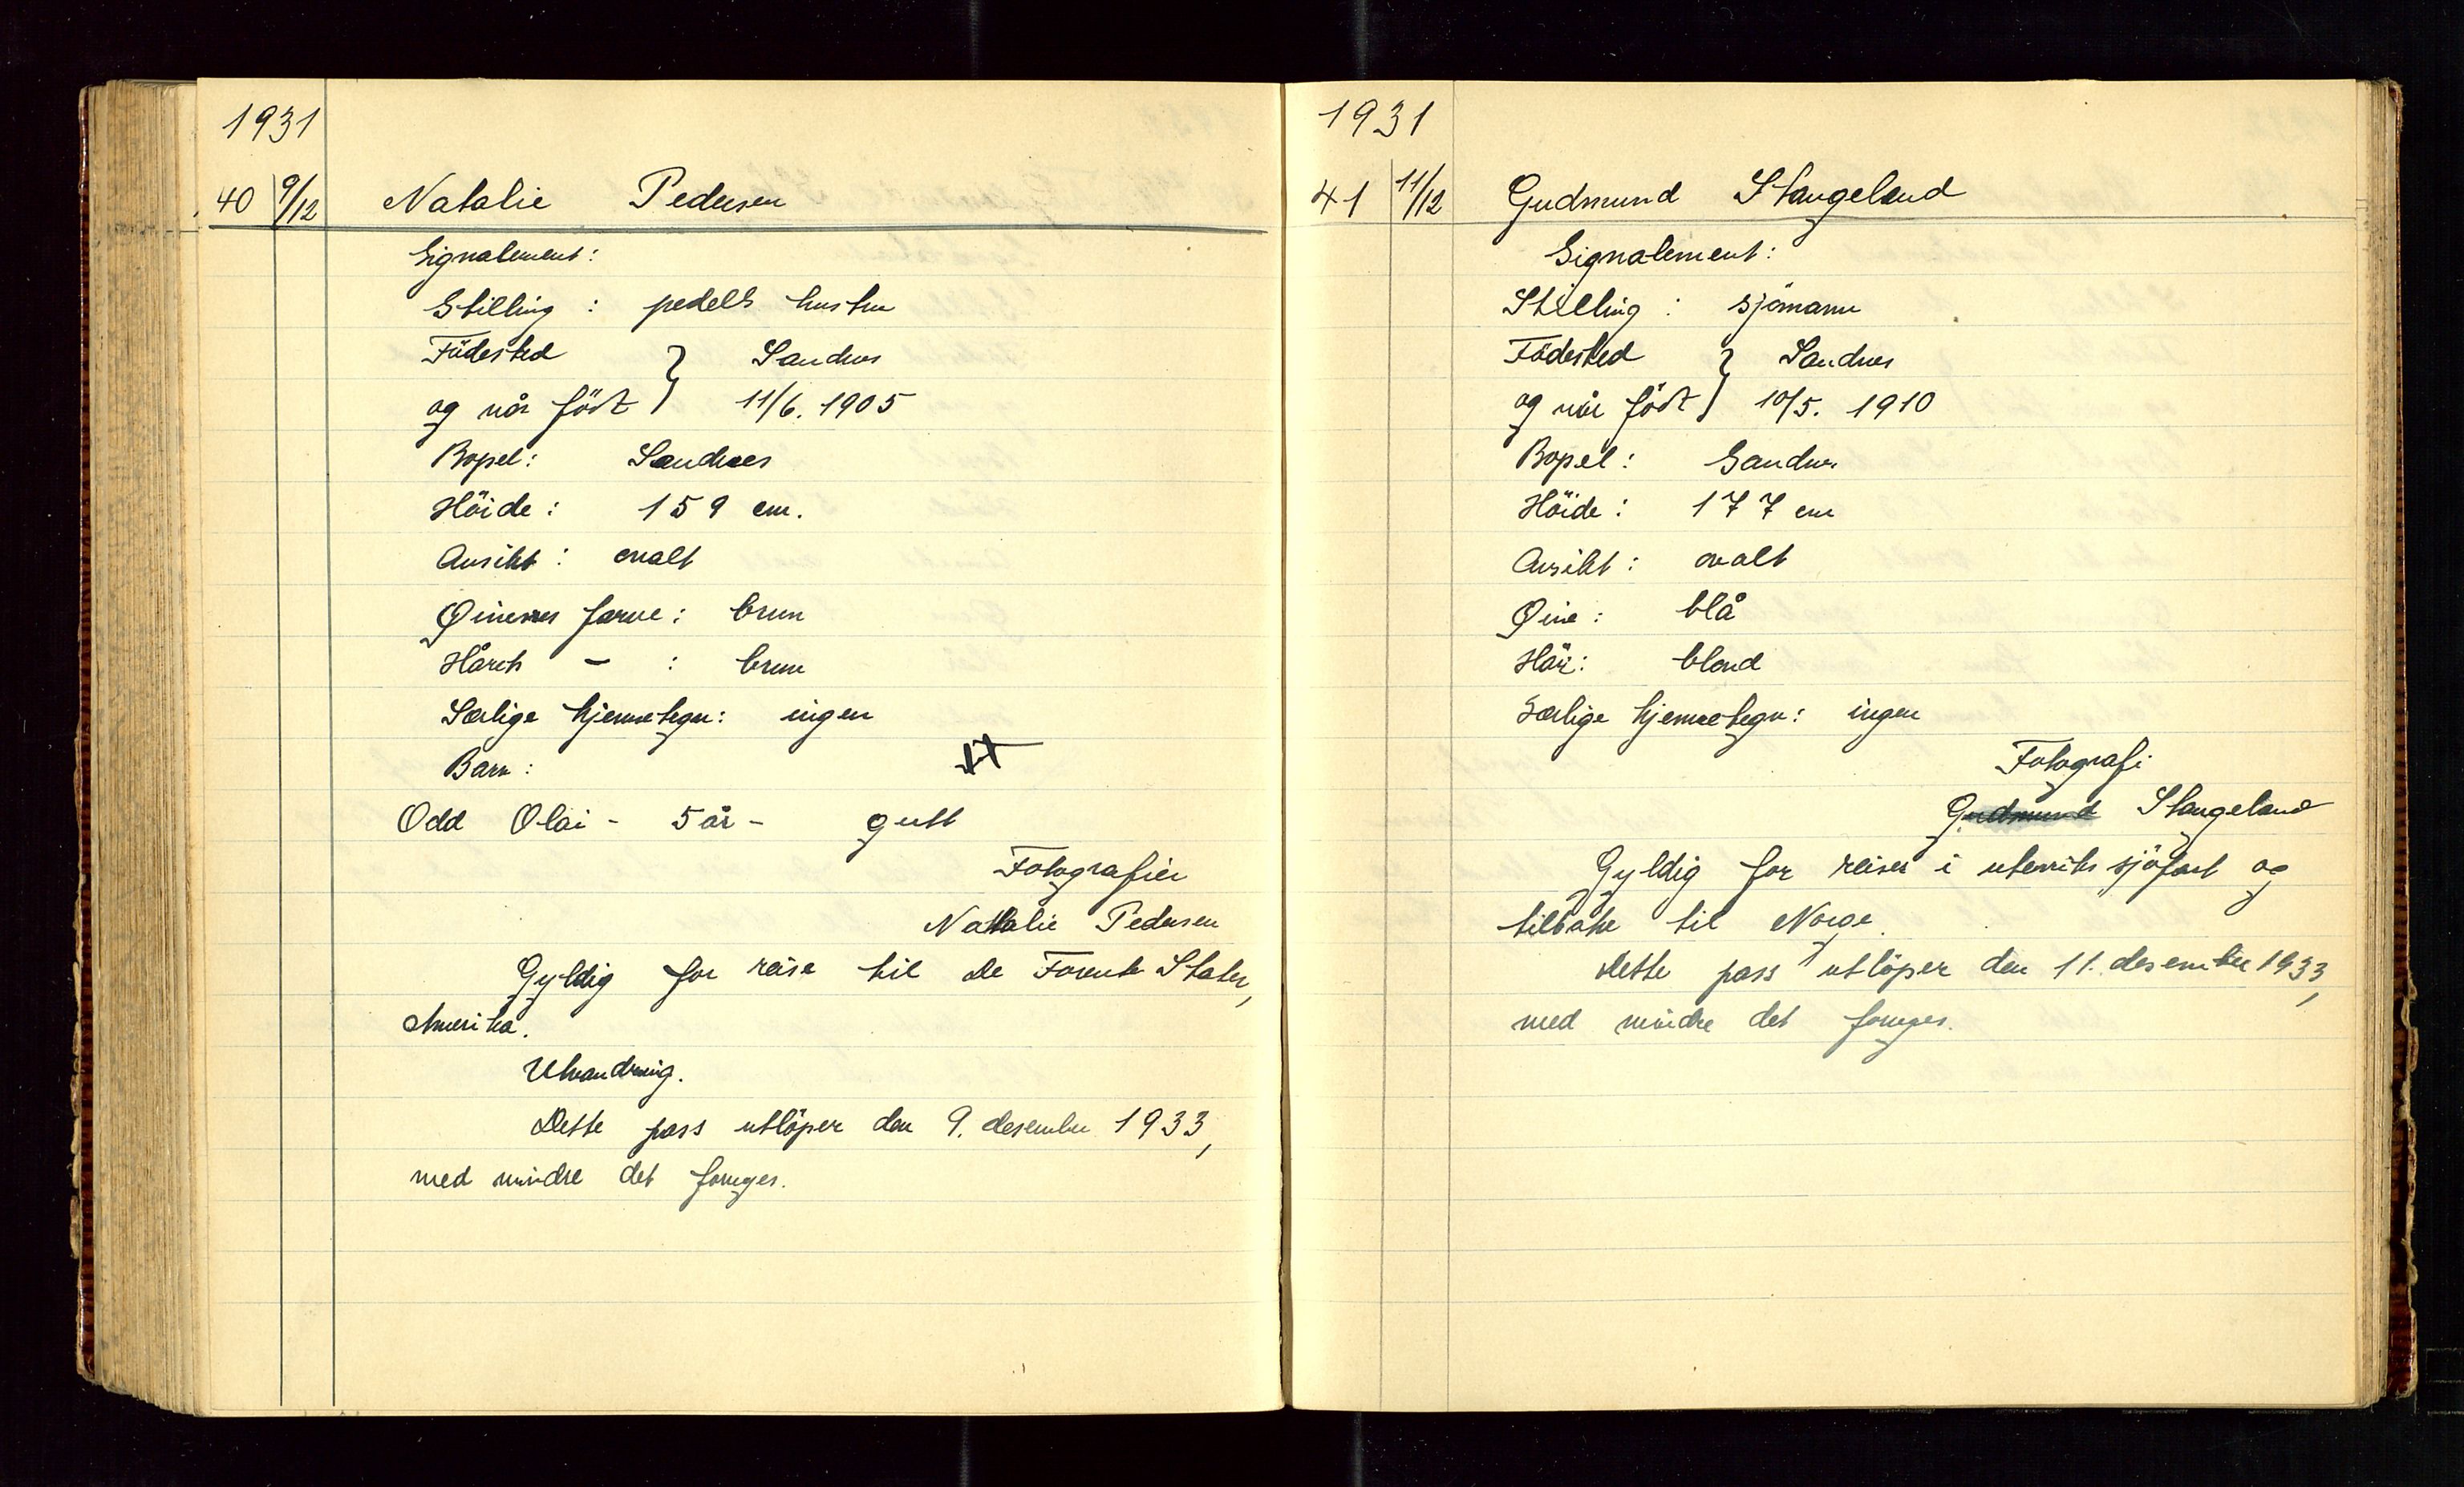 1931
40 9/12 Natalie Pedersen
Signalement:
Stilling : pedells hustru
Födested } Sandnes
og når födt } 11/6. 1905
Bopel: Sandnes
Höide: 159 cm.
Ansikt: ovalt
Øinenes farve: brun
Hårets - : brun
Særlige kjennetegn: ingen
Barn:
Odd Olai - 5 år - gutt
Fotografier
Natalie Pedersen
Gyldig for reise til De Forente Stater,
Amerika.
Utvandring.
Dette pass utlöper den 9. desember 1933,
med mindre det fornyes.
1931
41 11/12 Gudmund Stangeland
Signalement:
Stilling : sjömann
Födested } Sandnes
og når födt } 10/5. 1910
Bopel: Sandnes
Höide: 177 cm
Ansikt: ovalt
Øine: blå
Hår: blond
Særlige kjennetegn: ingen
Fotografi
Gudmund Stangeland
Gyldig for reiser i utenriks sjöfart og
tilbake til Norge.
Dette pass utlöper den 11. desember 1933,
med mindre det fornyes.